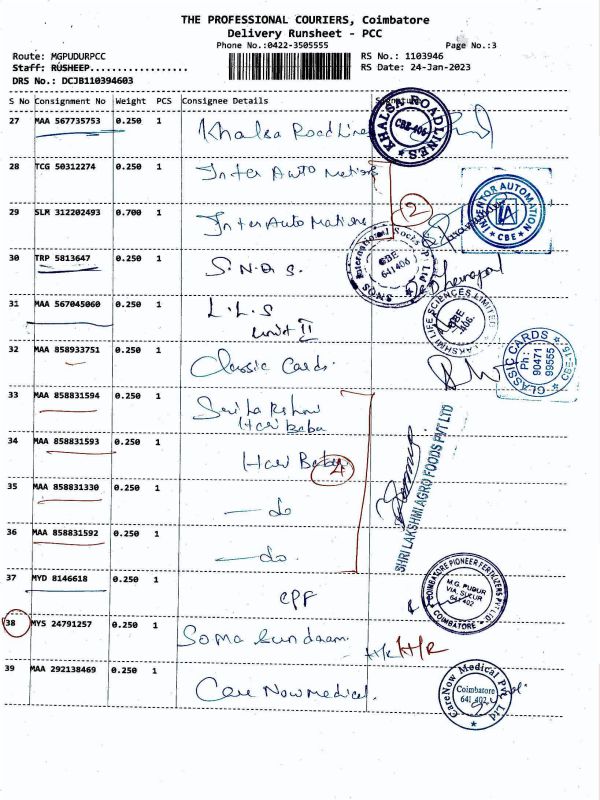 THE PROFESSIONAL COURIERS, Coimbatore
Delivery Runsheet - PCC
Phone No.:0422-3505555 Page No.:3
Route: MGPUDURPCC RS No.: 1103946
Staff: RUSHEEP.................. RS Date: 24-Jan-2023
DRS No.: DCJB110394603
S No Consignment No Weight PCS Consignee Details Signature
27 MAA 567735753 0.250 1 Khalsa RoadLines
KHALSA ROADLINES CBE-406
28 TCG 50312274 0.250 1 Inter Auto Mations
29 SLM 312202493 0.700 1 Inter Auto Mations
2
INVENTOR AUTOMATION IA CBE
30 TRP 5813647 0.250 1 S.N.Q.S.
SNQS International Socks Pvt Ltd CBE 641406
31 MAA 567045060 0.250 1 L.L.S
unit II
LAKSHMI LIFE SCIENCES LIMITED CBE -406.
32 MAA 858933751 0.250 1 Classic Cards.
CLASSIC CARDS Ph : 90471 99555 CBE-16
33 MAA 858831594 0.250 1 Sri Lakshmi
Hari Babu
34 MAA 858831593 0.250 1 Hari Babu
4
35 MAA 858831330 0.250 1 — do
36 MAA 858831592 0.250 1 — do.
SHRI LAKSHMI AGRO FOODS PVT LTD
37 MYD 8146618 0.250 1 CPF
COIMBATORE PIONEER FERTILIZERS PVT LTD. M.G. PUDUR VIA. SULUR 641 402 COIMBATORE
38 MYS 24791257 0.250 1 Soma Sundaram
H/R H/R
39 MAA 292138469 0.250 1 Care Now Medical.
CareNow Medical Pvt. Ltd Coimbatore 641 402